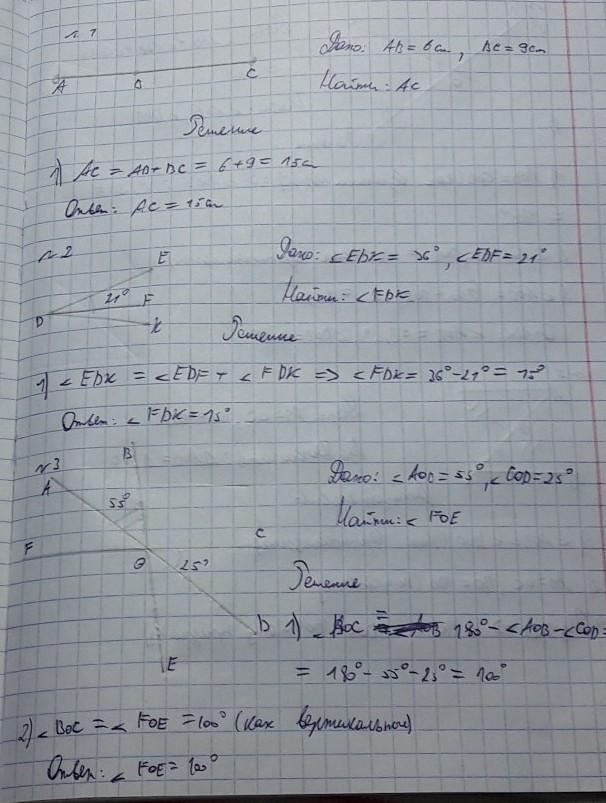 № 1
Дано: AB = 6см, BC = 9см
A B C
Найти: AC
Решение
1) AC = AB + BC = 6 + 9 = 15см
Ответ: AC = 15см
№ 2
E
Дано: ∠EDK = 36°, ∠EDF = 21°
21° F
Найти: ∠FDK
D K
Решение
1) ∠EDK = ∠EDF + ∠FDK => ∠FDK = 36° - 21° = 15°
Ответ: ∠FDK = 15°
№3
B
A
Дано: ∠AOB = 55°, ∠COD = 25°
55°
Найти: ∠FOE
F C
O 25°
Решение
D 1) ∠BOC = 180° - ∠AOB - ∠COD =
E
= 180° - 55° - 25° = 100°
2) ∠BOC = ∠FOE = 100° (как вертикальное)
Ответ: ∠FOE = 100°